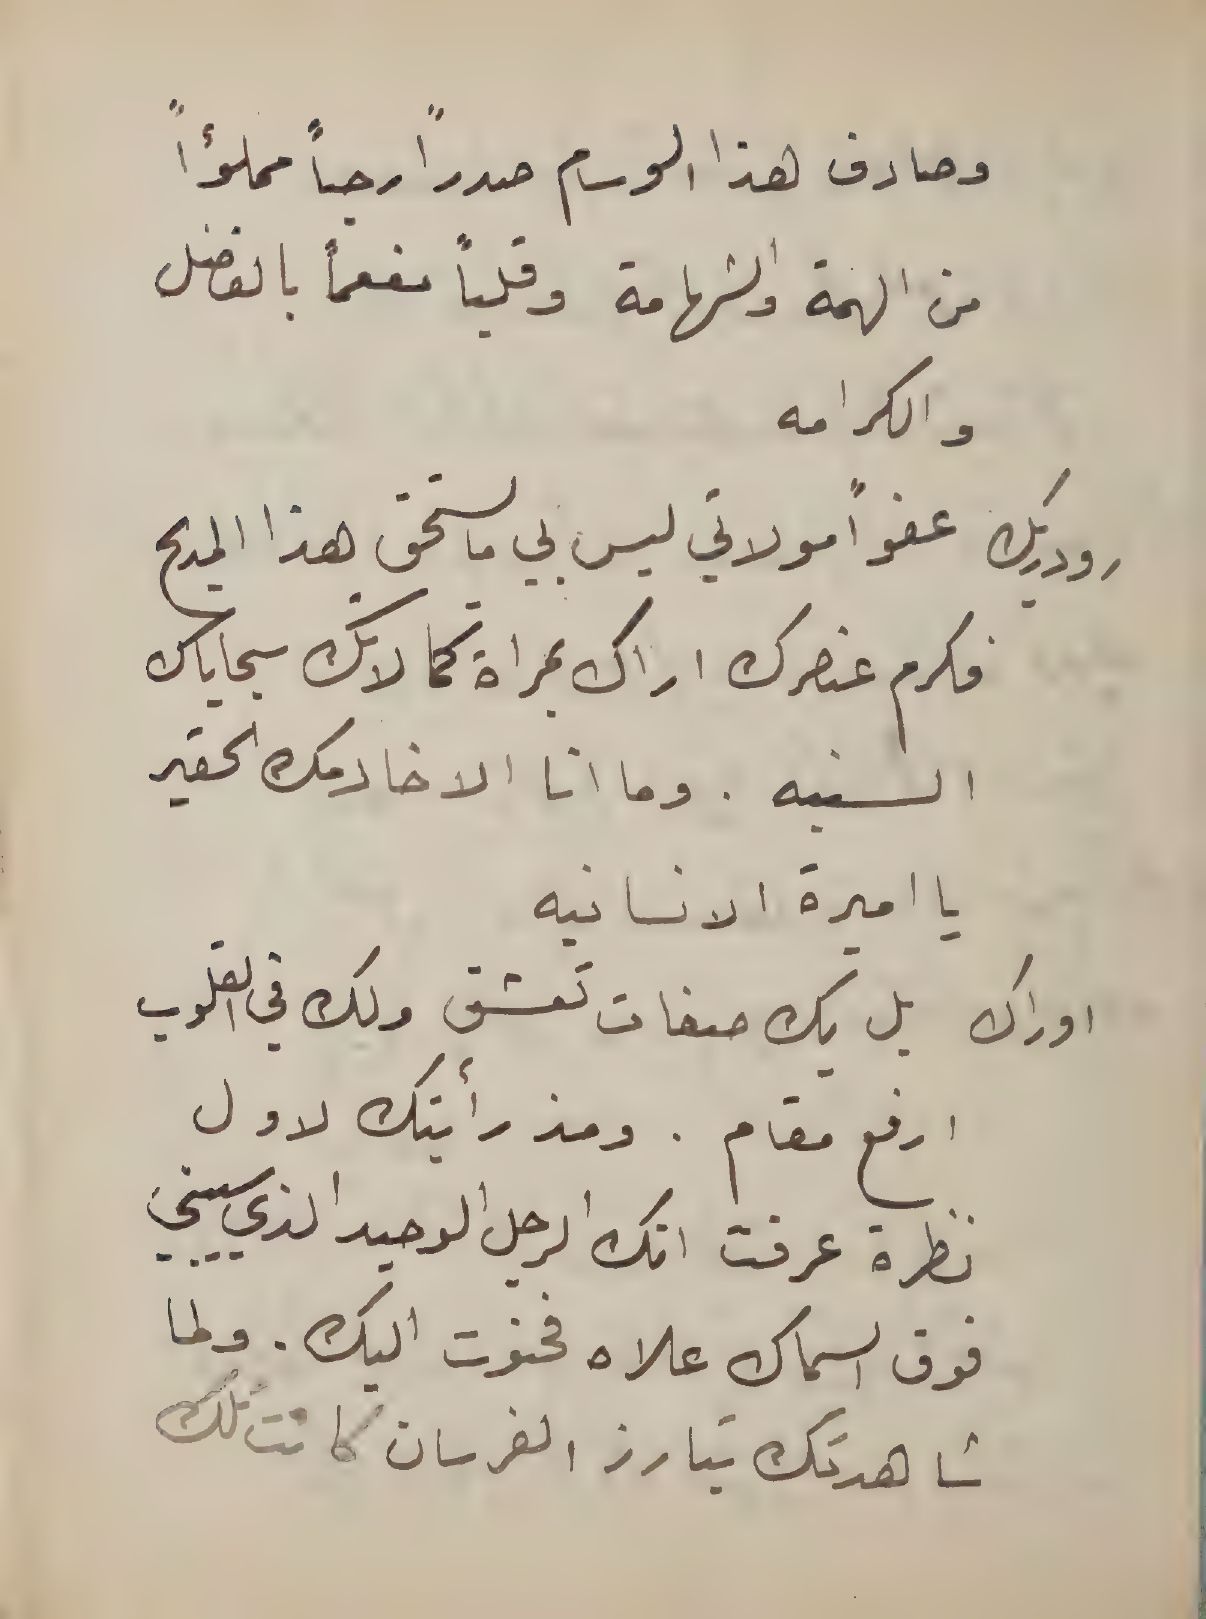 وصادف هذا الوسام صدراً رحباً مملؤاً
من الهمة والشهامة وقلباً مفعماً بالفضل
والكرامه
رودريك عفواً مولاتي ليس بي ما يستحق هذا المديح
فكرم عنصرك اراك بمراة كمالاتك سجاياك
السنيه . وما انا الا خادمك الحقير
يا اميرة الانسانيه
اوراك بل بك صفات تعشق ولك في القلوب
ارفع مقام . ومذ رأيتك لاول
نظرة عرفت انك الرجل الوحيد الذي سيبني
فوق السماك علاه فحنوت اليك . ولما
شاهدتك تبارز الفرسان كانت تلك